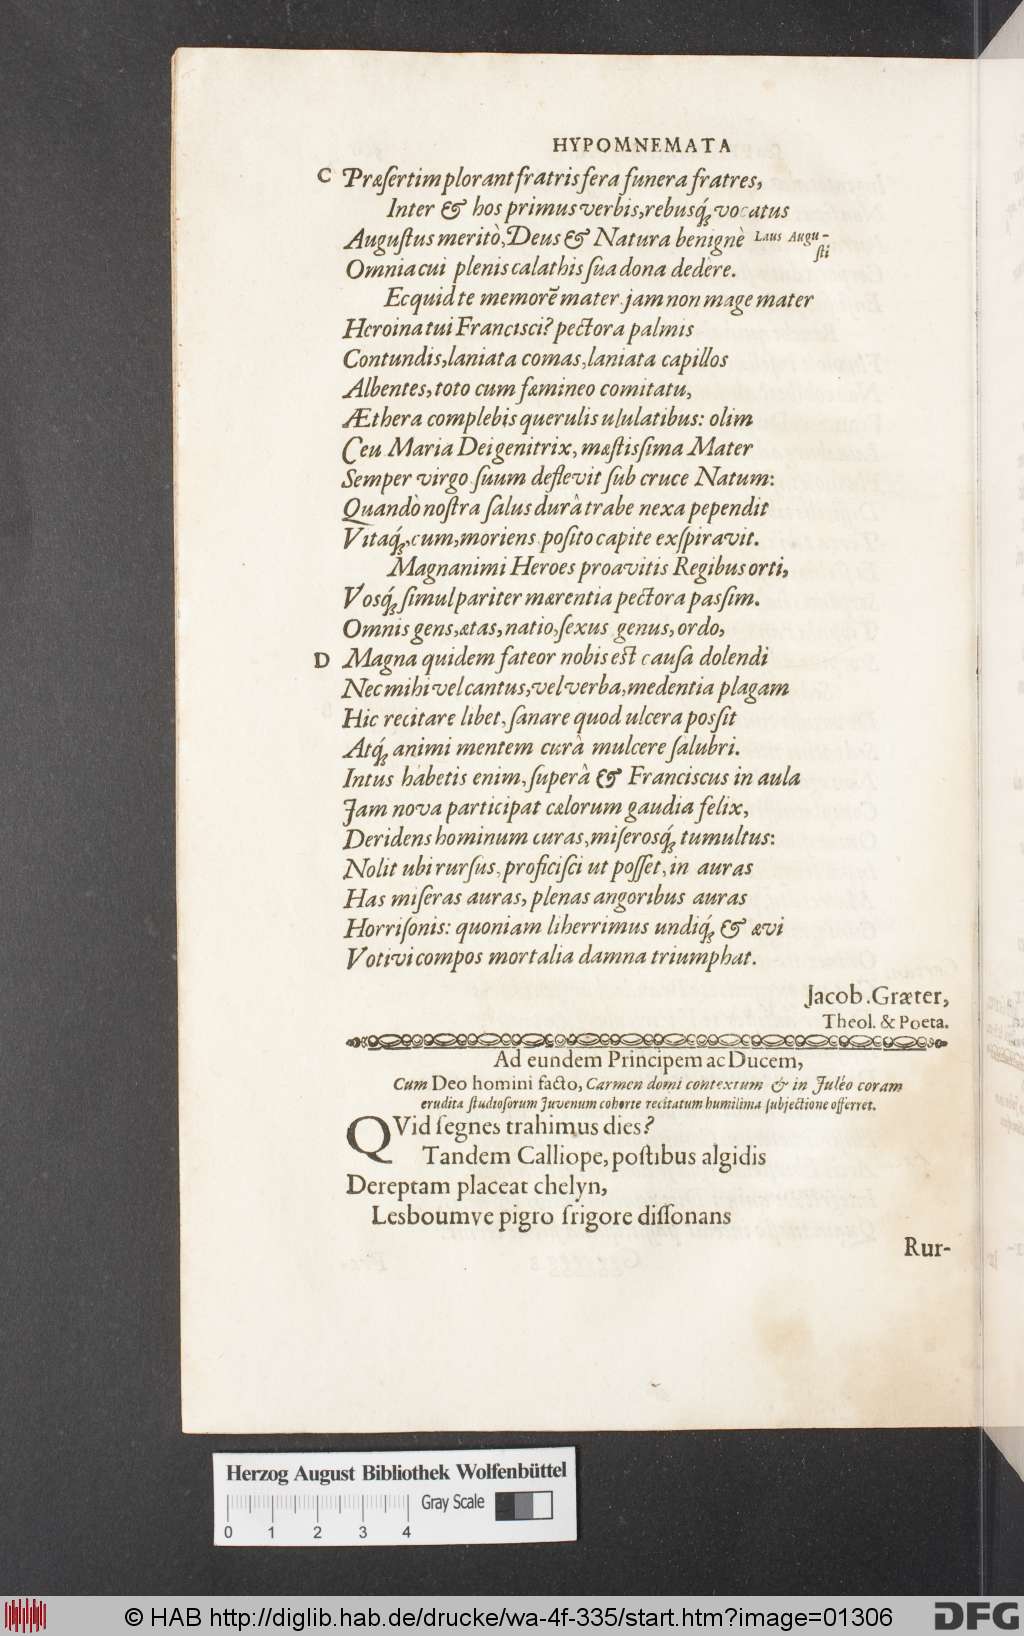 HYPOMNEMATA
C Præſertim plorant fratris fera funera fratres,
Inter & hos primus verbis, rebusq́ꝫ vocatus
Auguſtus meritò, Deus & Natura benignè Laus Augu-
ſti
Omnia cui plenis calathis ſua dona dedêre.
Ecquid te memorē mater. jam non mage mater
Heroina tui Francisci? pectora palmis
Contundis, laniata comas, laniata capillos
Albentes, toto cum fæmineo comitatu,
Æthera complebis querulis ululatibus: olim
Ceu Maria Deigenitrix, mæſtisſima Mater
Semper virgo ſuum deflevit ſub cruce Natum:
Quandò noſtra ſalus durâ trabe nexa pependit
Vitaq́ꝫ, cum, moriens poſito capite exſpiravit.
Magnanimi Heroes proavitis Regibus orti,
Vosq́ꝫ ſimul pariter mærentia pectora pasſim.
Omnis gens, ætas, natio, ſexus genus, ordo,
D Magna quidem fateor nobis est cauſa dolendi
Nec mihi vel cantus, vel verba, medentia plagam
Hic recitare libet, ſanare quod ulcera posſit
Atq́ꝫ animi mentem curâ mulcere ſalubri.
Intus habetis enim, ſuperâ & Franciscus in aula
Jam nova participat cælorum gaudia felix,
Deridens hominum curas, miſerosq́ꝫ tumultus:
Nolit ubi rurſus, proficiſci ut poſſet, in auras
Has miſeras auras, plenas angoribus auras
Horriſonis: quoniam liherrimus undiq́ꝫ & ævi
Votivi compos mortalia damna triumphat.
Jacob. Græter,
Theol. & Poeta.
Ad eundem Principem ac Ducem,
Cum Deo homini facto, Carmen domi contextum & in Juléo coram
erudita ſtudioſorum Juvenum cohorte recitatum humilima ſubjectione offerret.
QVid ſegnes trahimus dies?
Tandem Calliope, poſtibus algidis
Dereptam placeat chelyn,
Lesboumve pigro frigore diſſonans
Rur-
Herzog August Bibliothek Wolfenbüttel
Gray Scale
0 1 2 3 4
© HAB http://diglib.hab.de/drucke/wa-4f-335/start.htm?image=01306
DFG